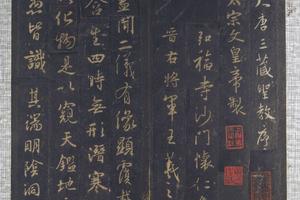 大唐三藏聖教序
太宗文皇帝製
弘福寺沙門懷仁集
晉右將軍王羲之
蓋聞二儀有像顯覆載
含生四時無形潛寒
以化物是以窺天鑑地
愚皆識其端明陰洞